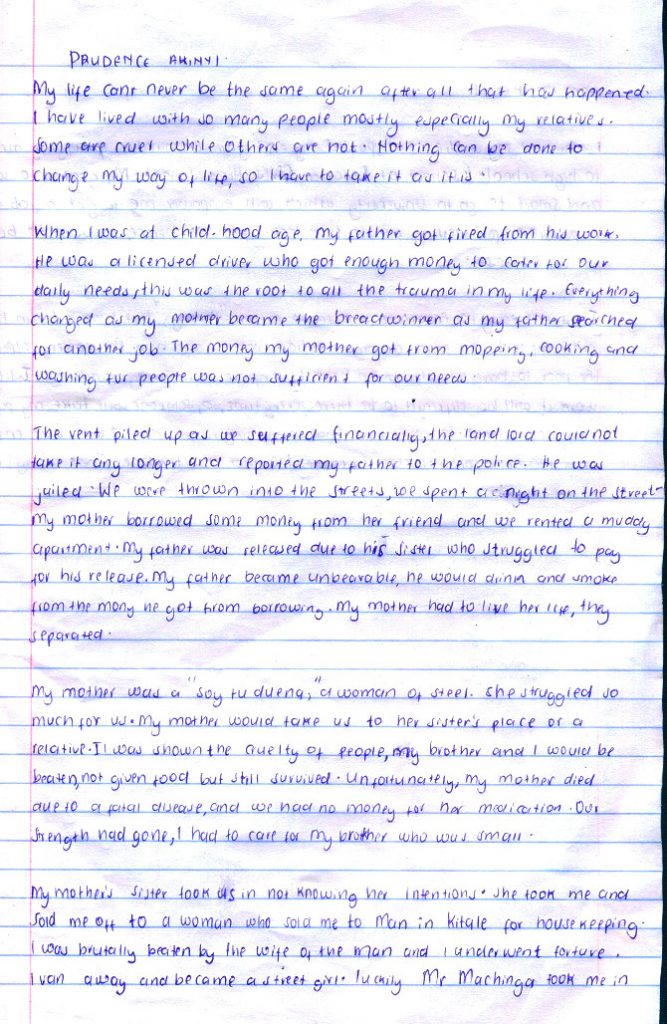 PRUDENCE AKINYI.
My life cant never be the same again after all that has happened.
I have lived with so many people mostly especially my relatives.
Some are cruel while others are not. Nothing can be done to
change my way of life, so I have to take it as it is.
When I was at child-hood age, my father got fired from his work.
He was a licensed driver who got enough money to cater for our
daily needs, this was the root to all the trauma in my life. Everything
changed as my mother became the breadwinner as my father searched
for another job. The money my mother got from mopping, cooking and
washing for people was not sufficient for our needs.
The rent piled up as we suffered financially, the land lord could not
take it any longer and reported my father to the police. He was
jailed. We were thrown into the streets, we spent a night on the street
my mother borrowed some money from her friend and we rented a muddy
apartment. My father was released due to his sister who struggled to pay
for his release. My father became unbearable, he would drink and smoke
from the mony he got from borrowing. My mother had to live her life, they
separated.
My mother was a "soy tu duena," a woman of steel. She struggled so
much for us. My mother would take us to her sister's place or a
relative. I was shown the cruelty of people, my brother and I would be
beaten, not given food but still survived. Unfortunately, my mother died
due to a fatal disease, and we had no money for her medication. Our
strength had gone, I had to care for my brother who was small.
My mother's sister took us in not knowing her intentions. She took me and
sold me off to a woman who sold me to Man in Kitale for house keeping.
I was brutally beaten by the wife of the man and I underwent torture.
I ran away and became a street girl. luckily Mr Machinga took me in